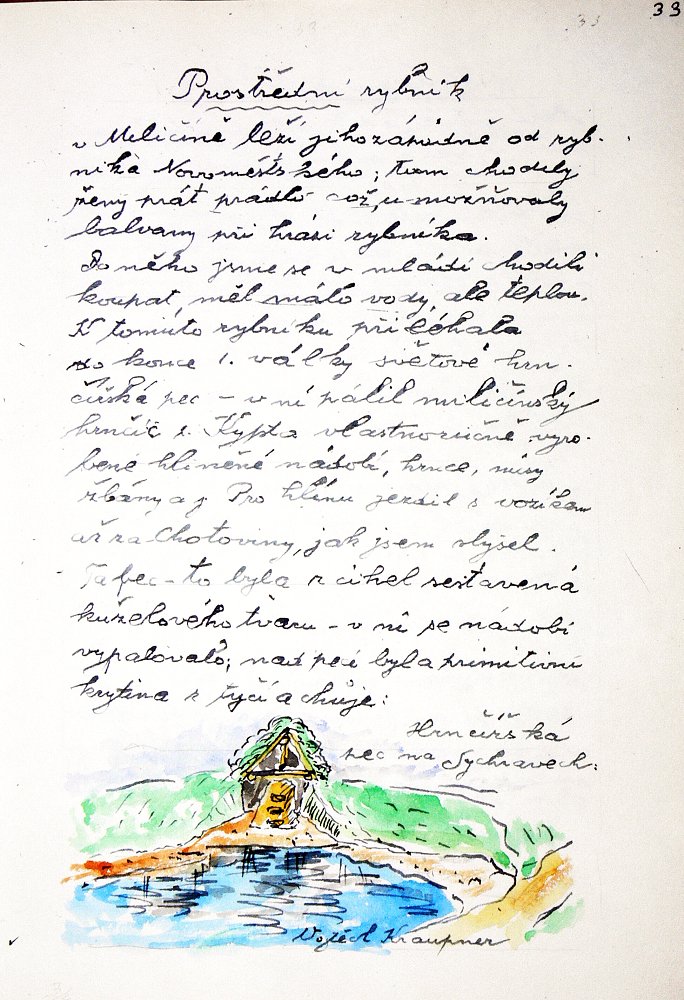 33
Prostřední rybník
v Miličíně leží jihozápadně od ryb-
níka Novoměstského; tam chodily
ženy prát prádlo což umožňovaly
balvany při hrázi rybníka.
Do něho jsme se v mládí chodili
koupat, měl málo vody, ale teplou.
K tomuto rybníku přiléhala
do konce 1. války světové hrn-
čířská pec – v ní pálil miličínský
hrnčíř p. Kypta vlastnoručně vyro-
bené hliněné nádobí, hrnce, mísy
žbány a j. Pro hlínu jezdil s vozíkem
až za Chotoviny, jak jsem slyšel.
Ta pec – to byla z cihel sestavená
kuželového tvaru – v ní se nádobí
vypalovalo; nad pecí byla primitivní
krytina z tyčí a chvoje:
Hrnčířská
pec na Sychravech:
Vojtěch Kraupner